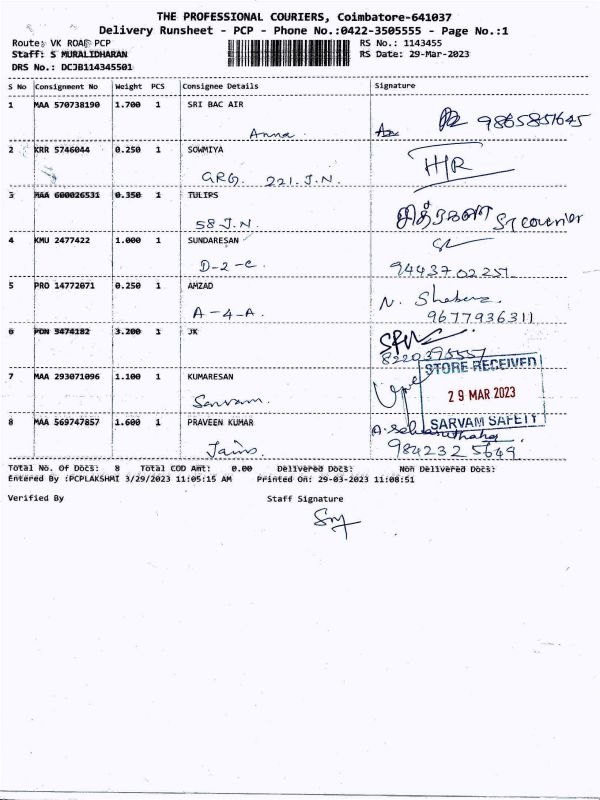 THE PROFESSIONAL COURIERS, Coimbatore-641037
Delivery Runsheet - PCP - Phone No.:0422-3505555 - Page No.:1
Route: VK ROAD PCP RS No.: 1143455
Staff: S MURALIDHARAN RS Date: 29-Mar-2023
DRS No.: DCJB114345501
S No Consignment No Weight PCS Consignee Details Signature
1 MAA 570738190 1.700 1 SRI BAC AIR
Anna 9865851645
2 KRR 5746044 0.250 1 SOWMIYA
GRG. 221. J.N.
3 MAA 600026531 0.350 1 TULIPS
58 J.N. ST courier
4 KMU 2477422 1.000 1 SUNDARESAN
D-2-C. 9443702251
5 PRO 14772071 0.250 1 AMZAD
A-4-A. 9677936311
6 PDN 3474182 3.200 1 JK
8220395557
7 MAA 293071096 1.100 1 KUMARESAN
Sarvam.
STORE RECEIVED
29 MAR 2023
SARVAM SAFETY
8 MAA 569747857 1.600 1 PRAVEEN KUMAR
Jains. 9842325649
Total No. Of Docs: 8 Total COD Amt: 0.00 Delivered Docs: Non Delivered Docs:
Entered By :PCPLAKSHMI 3/29/2023 11:05:15 AM Printed On: 29-03-2023 11:08:51
Verified By Staff Signature